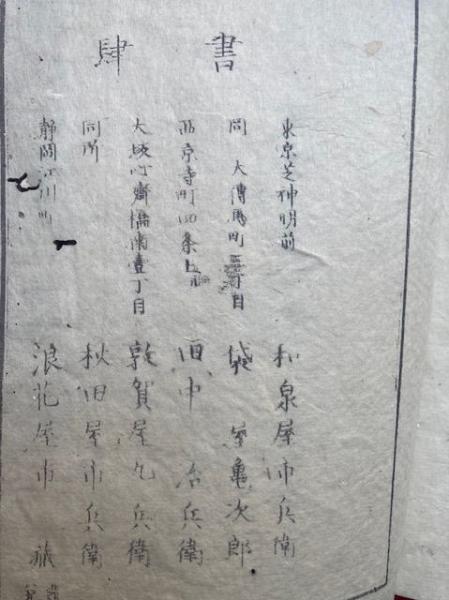 書肆
東京芝神明前 和泉屋市兵衛
同 大傳馬町 丁目 袋屋亀次郎
西京寺町四条上 田中治兵衛
大坂心齋橋南壹丁目 敦賀屋九兵衛
同所 秋田屋市兵衛
静岡江川町 浪花屋市蔵